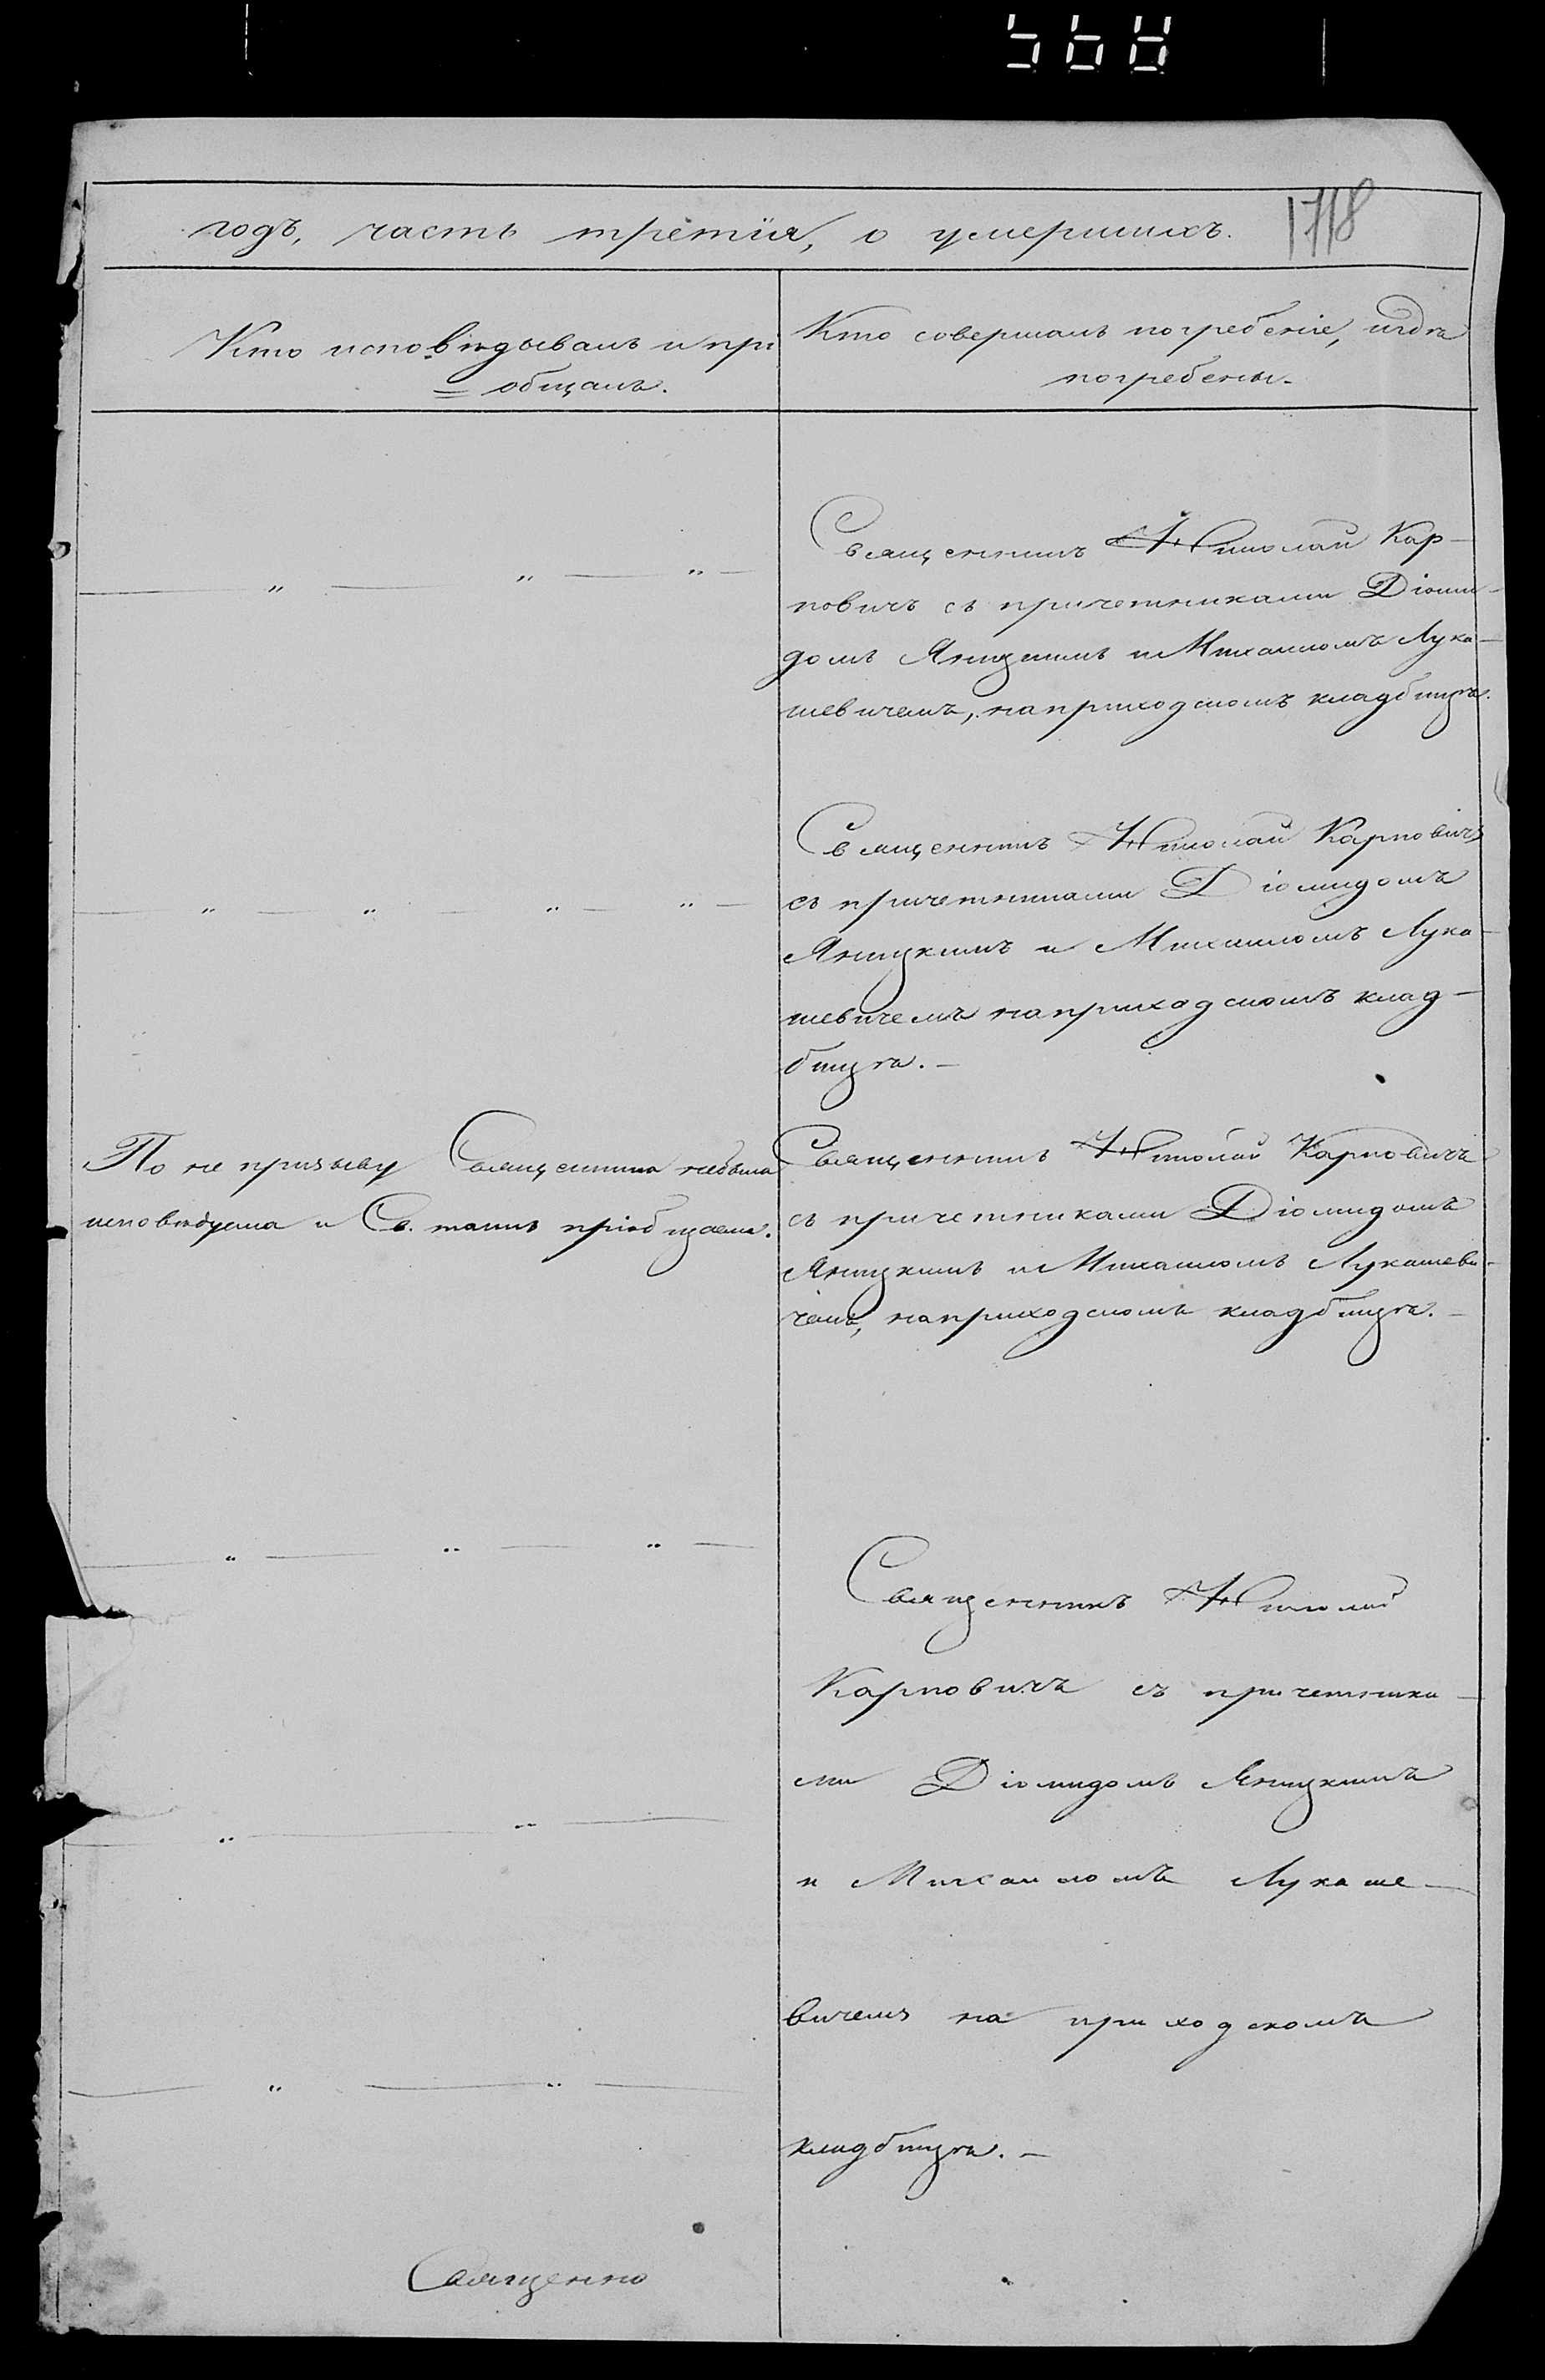 568
годъ, часть третія, о умершихъ.
1718
Кто исповѣдывалъ и прі
= общалъ.
Кто совершалъ погребеніе, и гдѣ
погребены.
Священникъ Николай Кар-
повичъ съ причетниками Діоми-
домъ Яницкимъ и Михаиломъ Лука-
шевичемъ, на приходскомъ кладбищѣ.
Священникъ Николай Карповичъ
съ причетниками Діомидомъ
Яницкимъ и Михаиломъ Лука-
шевичемъ на приходскомъ клад-
бищѣ. -
По не призыву Священника небыла
исповѣдуема и Св. таинъ пріобщаема.
Священникъ Николай Карповичъ
съ причетниками Діомидомъ
Яницкимъ и Михаиломъ Лукашеви-
чемъ, на приходскомъ кладбищѣ. -
Священникъ Николай
Карповичъ съ причетника-
ми Діомидомъ Яницкимъ
и Михаиломъ Лукаше-
вичемъ на приходскомъ
кладбищѣ. -
Священно